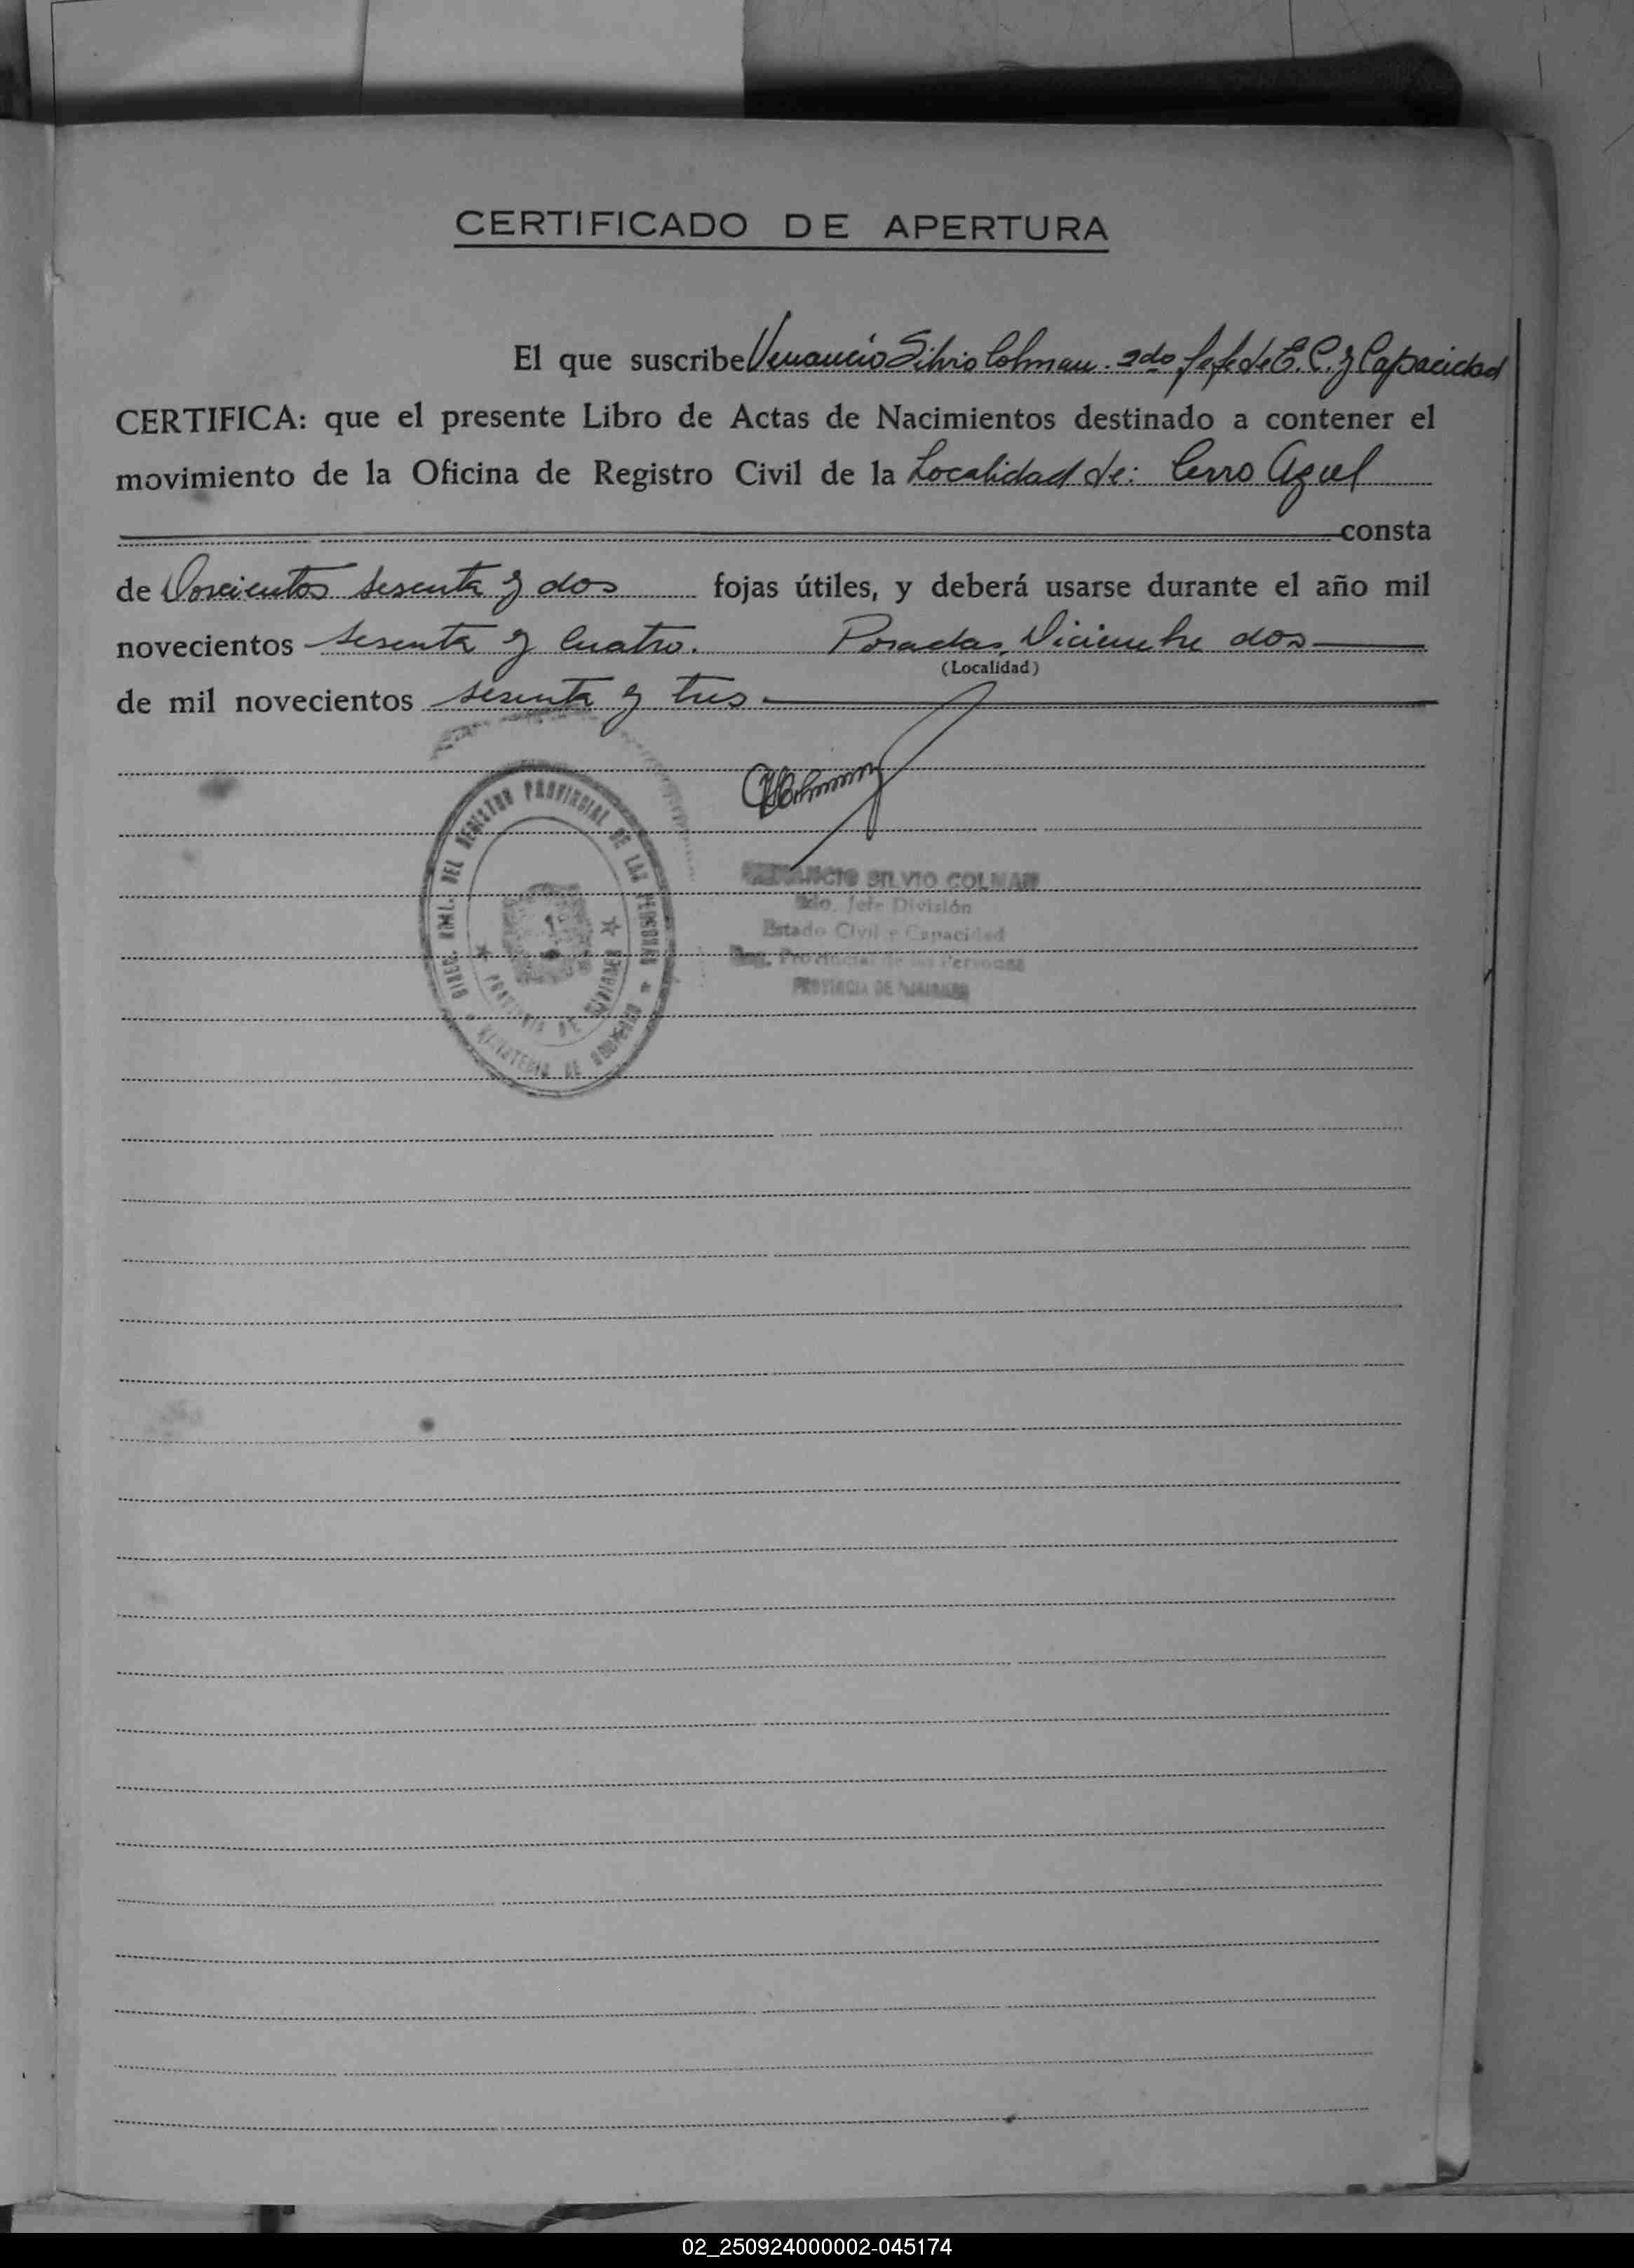 CERTIFICADO DE APERTURA
El que suscribe Venancio Silvio Colman. 2do Jefe de E.C. y Capacidad
CERTIFICA: que el presente Libro de Actas de Nacimientos destinado a contener el
movimiento de la Oficina de Registro Civil de la Localidad de: Cerro Azul
consta
de Doscientos sesenta y dos fojas útiles, y deberá usarse durante el año mil
novecientos sesenta y cuatro. Posadas, Diciembre dos
(Localidad)
de mil novecientos sesenta y tres
DIREC. GRAL. DEL REGISTRO PROVINCIAL DE LAS PERSONAS
MINISTERIO DE GOBIERNO
PROVINCIA DE MISIONES
VENANCIO SILVIO COLMAN
2do. Jefe División
Estado Civil y Capacidad
Reg. Provincial de las Personas
PROVINCIA DE MISIONES
02_250924000002-045174